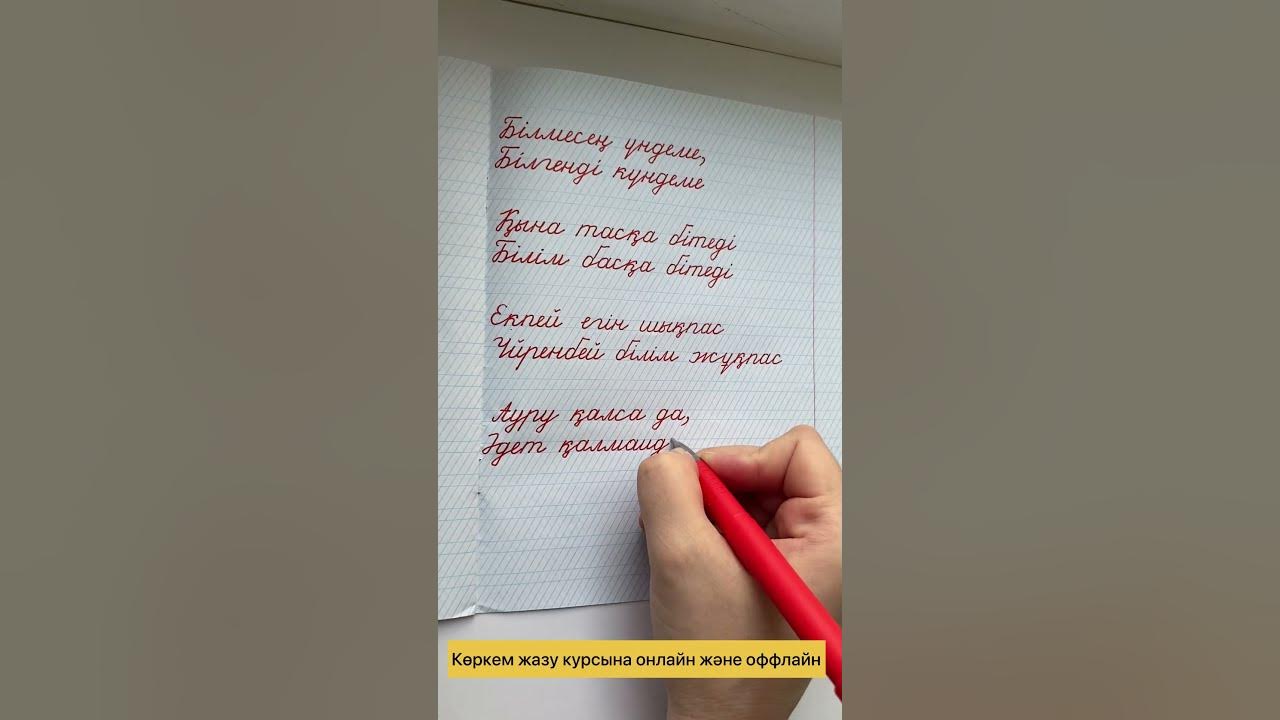 Білмесең үндеме,
Білгенді күндеме
Қына тасқа бітеді
Білім басқа бітеді
Екпей егін шықпас
Үйренбей білім жұқпас
Ауру қалса да,
Әдет қалмаид
Көркем жазу курсына онлайн және оффлайн